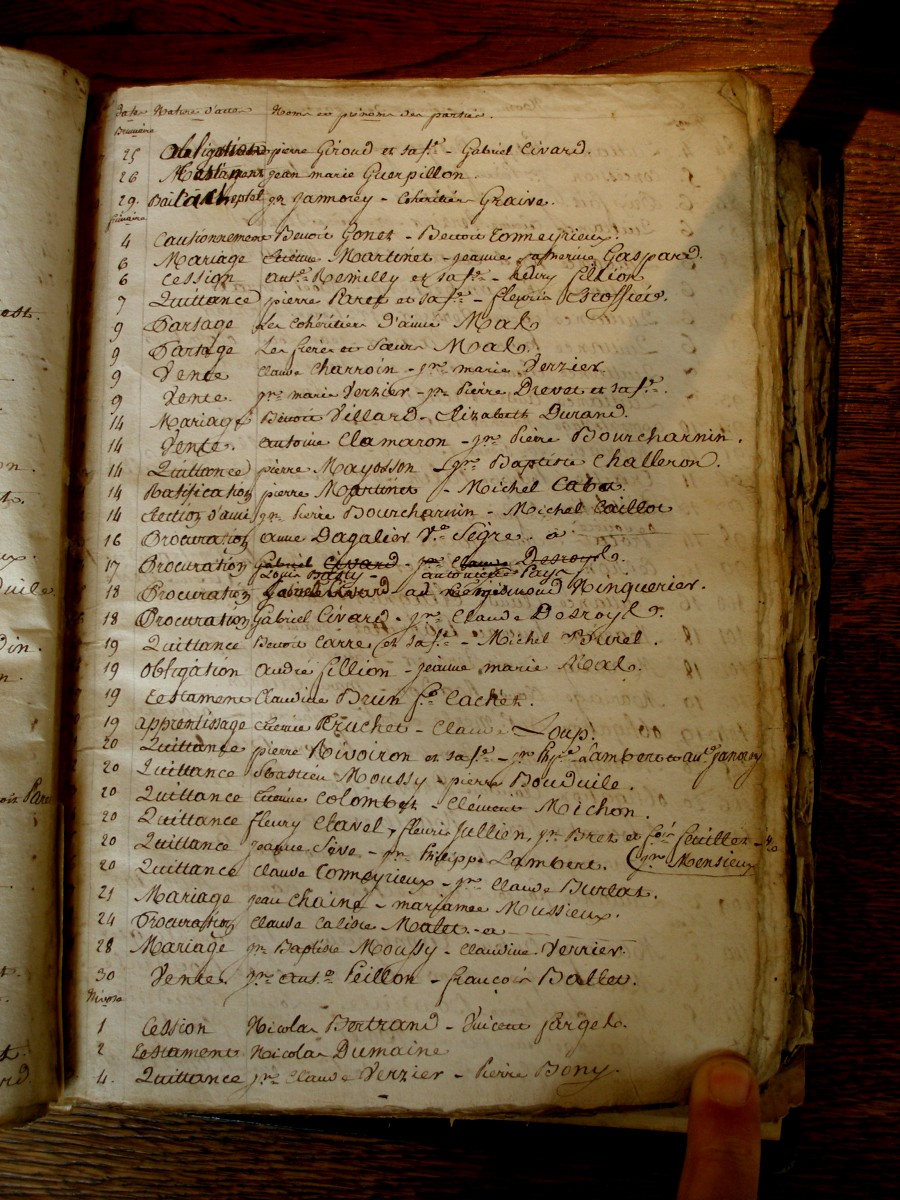 est.
on.
ts.
ux.
Duile
din.
n.
Date Nature d'acte Noms et prénoms des parties.
Brumaire
25 Obligation pierre Giroud et sa fe. - Gabriel Civard.
26 Testament jean marie Guerpillon.
29. Bail à cheptel jn Jamorey - Cohéritiers Graive.
frimaire
4 Cautionnement Benoit Gonet - Benoit Commeyrieux.
6 Mariage Etienne Martinet - jeanne Gaspard.
6 Cession ante. Remilly et sa fe. - fillion
7 Quittance pierre Paret et sa fe. - fleurie Escoffier.
9 Partage Les Cohéritiers d'aimé Malo
9 Partage Les frères et soeurs Malo.
9 Vente Claude Charroin - jn. marie Verzier
9 Vente. jn. marie Verzier - jn Pierre Drevet et sa fe.
14 Mariage Benoit Villard - Elizabeth Durand.
14 Vente. antoine Clamaron - jn. Pierre Bourcharnin.
14 Quittance pierre Mayosson - jn. Baptiste Challeron.
14 Ratification pierre Martinet - Michel
14 Election d'ami jn. Pierre Bourcharnin - Michel Caillot
16 Procuration anne Dagalier Ve. Segre. a
17 Procuration Gabriel Civard - jn. Claude Desroyle.
Louis - antoinette Pays
18 Procuration ad Ninguerier.
18 Procuration Gabriel Civard - jn. Claude Desroyle.
19 Quittance Benoit Carre et sa fe. - Michel
19 Obligation andré fillion - jeanne marie Malo.
19 Testament Claudine Brun fe. Cachet.
19 apprentissage etienne Bruchet - Claude Loup.
20 Quittance pierre Rivoiron et sa fe. - jn. Lambert et ante. janory
20 Quittance Sebastien Moussy - pierre Bouduile.
20 Quittance Etienne Colombet - Clement Michon.
20 Quittance fleury Clavel, fleurie Jullien, jn. Bret et feuillet -
20 Quittance jeanne Seve - jn. Philippe Lambert. jn. Monsieux
20 Quittance Claude Commeyrieux - jn. Claude Burlat.
21 Mariage jean Chaine - mariamée Mussieux.
24 Procuration Claude Calixte Malet. - a
28 Mariage jn. Baptiste Moussy - Claudine Verrier.
30 Vente. jn. ante. Peillon - françois Ballet.
Nivose
1 Cession Nicolas Bertrand - Vincent jargelo.
2 Testament Nicolas Dumaine
4. Quittance jn. Claude Verzier - Pierre Bony.